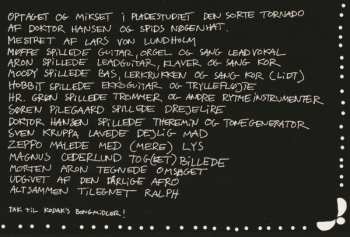 OPTAGET OG MIKSET I PLADESTUDIET DEN SORTE TORNADO
AF DOKTOR HANSEN OG SPIDS NØGENHAT.
MESTRET AF LARS VON LUNDHOLM
MØFFE SPILLEDE GUITAR, ORGEL OG SANG LEADVOKAL
ARON SPILLEDE LEADGUITAR, KLAVER OG SANG KOR
MOODY SPILLEDE BAS, LERKRUKKEN OG SANG KOR (LIDT)
HOBBIT SPILLEDE EKKOGUITAR OG TRYLLEFLØJTE
HR. GRØN SPILLEDE TROMMER OG ANDRE RYTMEINSTRUMENTER
SØREN PILEGAARD SPILLEDE DREJELIRE
DOKTOR HANSEN SPILLEDE THEREMIN OG TONEGENERATOR
SVEN KRUPPA LAVEDE DEJLIG MAD
ZEPPO MALEDE MED (MERE) LYS
MAGNUS CEDERLUND TOG(BET) BILLEDE
MORTEN ARON TEGNEDE OMSLAGET
UDGIVET AF DEN DÅRLIGE AFRO
ALTSAMMEN TILEGNET RALPH
TAK TIL KODAK'S BONGMIDLER!